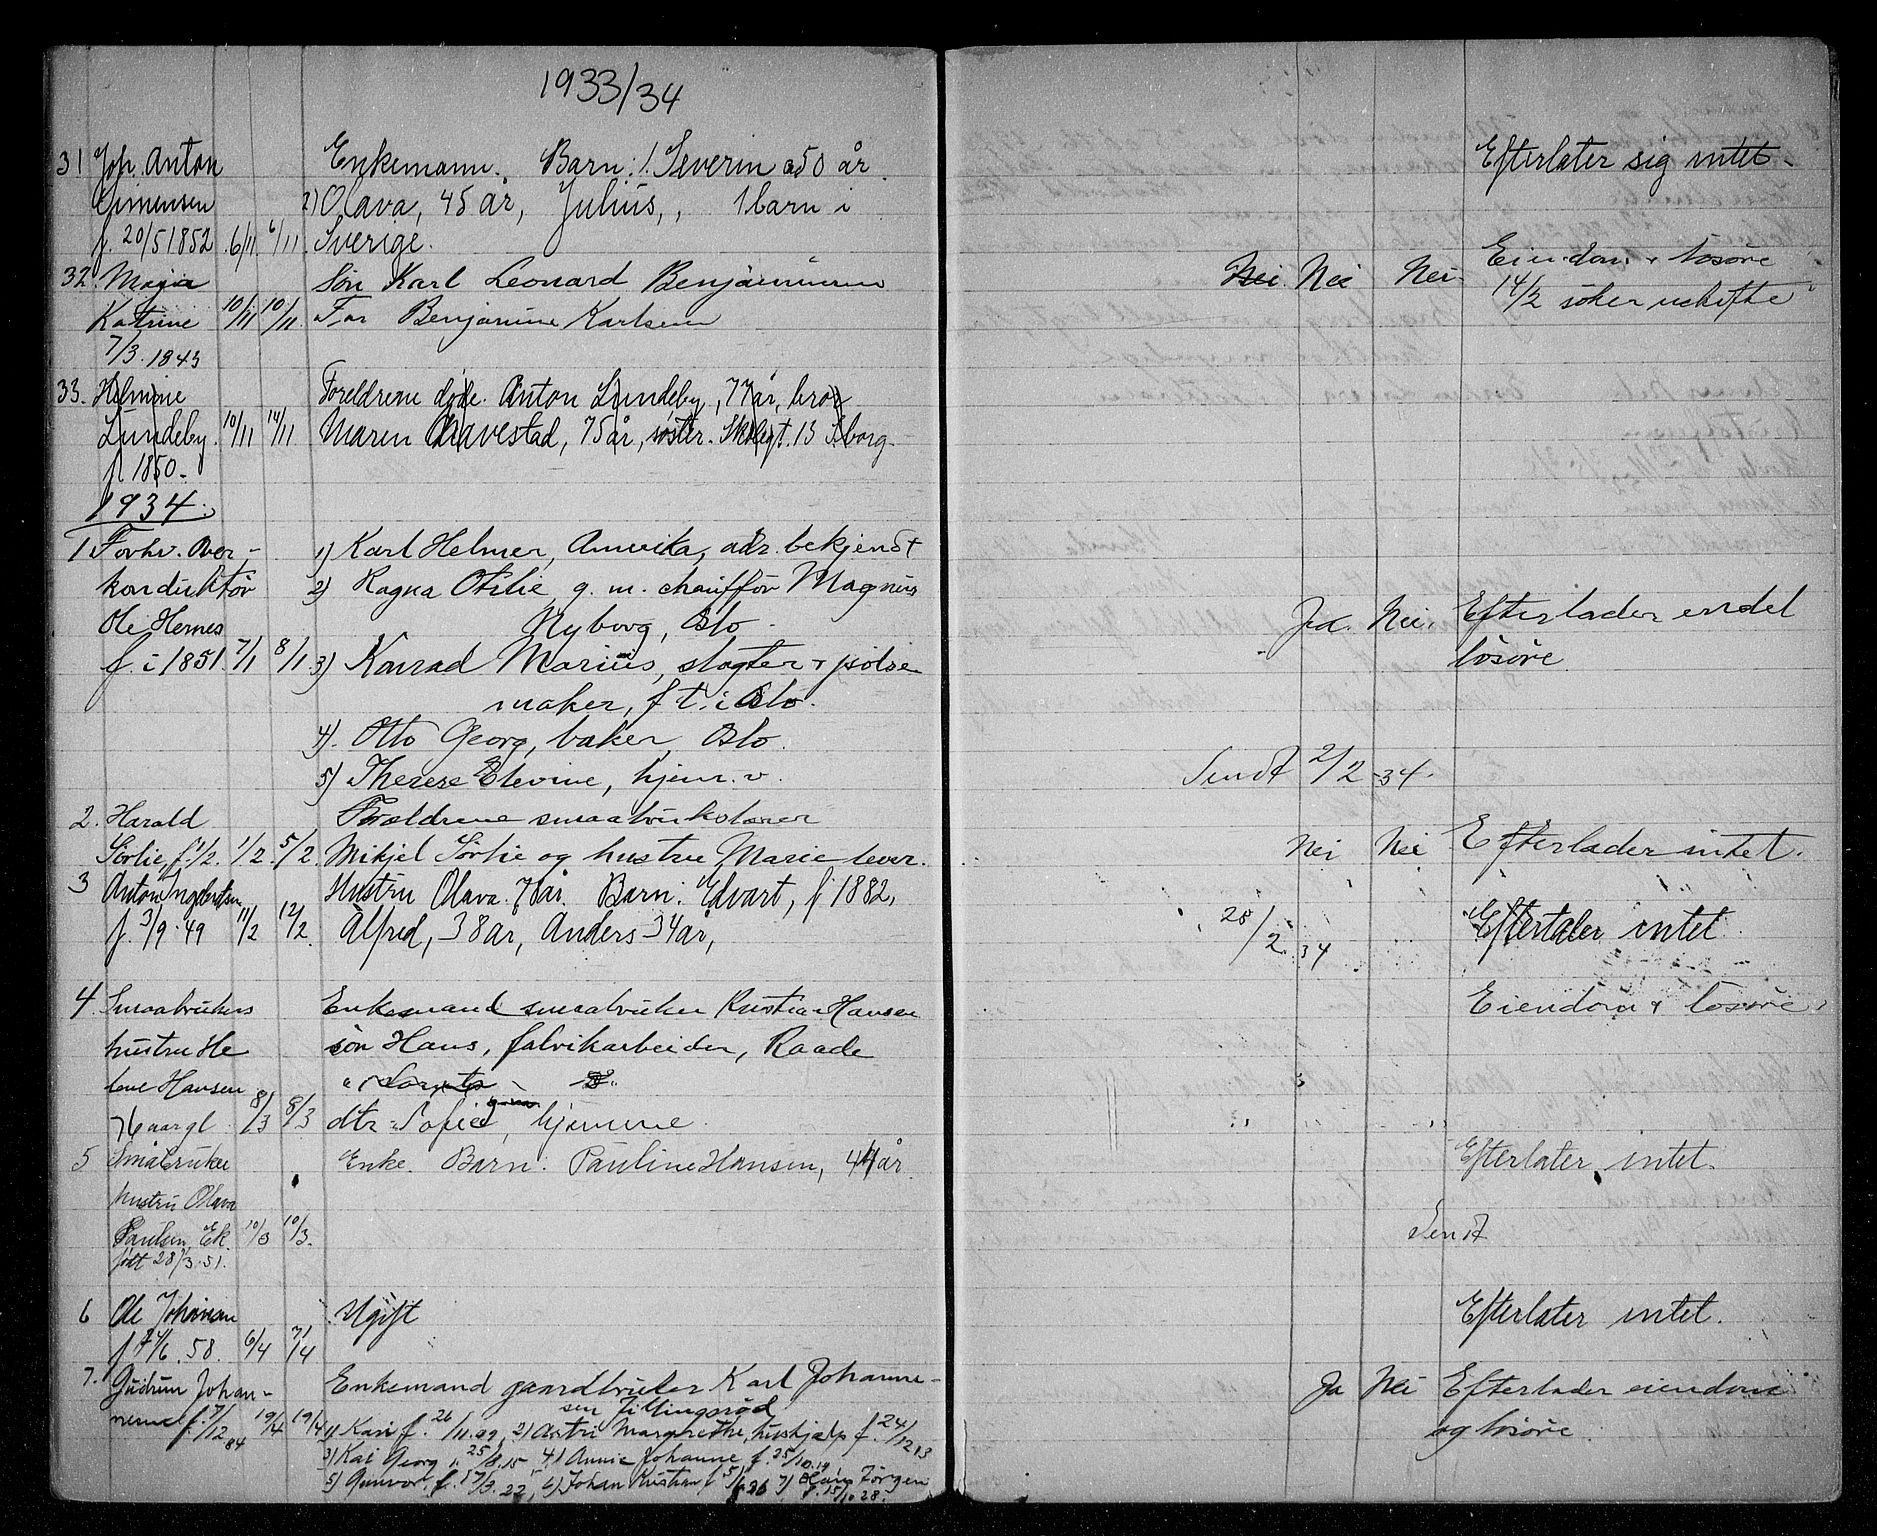 1933/34
31 Joh. Anton Enkemann. Barn: 1. Severin 50 år. Efterlater sig intet.
Simensen 2) Olava, 45 år, Julius, 1 barn i
f. 20/5 1852 6/11 6/11 Sverige.
32. Maja Søn Karl Leonard Benjaminsen Nei Nei Nei. Eiendom + løsøre
Katrine 10/11 10/11 Far Benjamin Karlsen 14/2 søker uskifte
7/3. 1843
33. Helmine Foreldrene døde. Anton Lundeby, 77 år, bror
Lundeby. 10/11 14/11 Maren Navestad, 75 år, søster. Skolegt. 13 S.borg.
f 1850.
1934.
1 Forhv. Over- 1) Karl Helmer, Amerika, adr. bekjendt
konduktør 2) Ragna Otilie, g. m. chauffør Magnus
Ole Hernes Nyborg, Oslo. Ja. Nei. Efterlader endel
f. i 1851 7/1 8/1 3) Konrad Marius, slagter + pølse løsøre
maker, f t. i Oslo.
4). Otto Georg, baker, Oslo.
5) Therese Elevine, hjem. v. Sendt 2/2-34.
2. Harald Forældrene smaabrukeren
Sörlie, f. 1/2. 1/2. 5/2. Mikjel Sörlie og hustru Marie lever. Nei Nei Efterlader intet.
3 Anton Ingebretsen Hustru Olava 78 år. Barn: Edvart, f 1882,
f. 3/9. 49 11/2 12/2. Alfred, 38 år, Anders 34 år, 28/2 34 Efterlater intet
4. Smaabrukers Enkemand smaabruker Kristian Hansen Eiendom + løsøre
hustru He søn Hans, fabrikarbeider, Raade
lene Hansen
76 aar gl 8/3 8/3 dtr Sofie, hjemme.
5 Småbruker Enke. Barn: Pauline Hansen, 44 år Efterlater intet.
hustru Olava
Paulsen Ek. 10/3 10/3. Sendt
født 28/3. 51.
6 Ole Johansen Ugift Efterlater intet.
f 4/6. 58. 6/4 7/4
7. Gudrun Johan- Enkemand gaardbruker Karl Johanne- Ja Nei Efterlader eiendom
sen Jillingsrød og løsøre.
nesen f. 7/12 84 19/4 19/4 1) Kari f. 26/11. 09, 2) Astri Margrethe, hushjælp f. 24/12 13
3) Kai Georg f. 25/8. 15 4) Annie Johanne f. 25/10. 19
5) Gunvor, f. 17/3. 22, 6) Johan Kristian f 5/6 26 7) Hans Jörgen
f. 15/10 28.